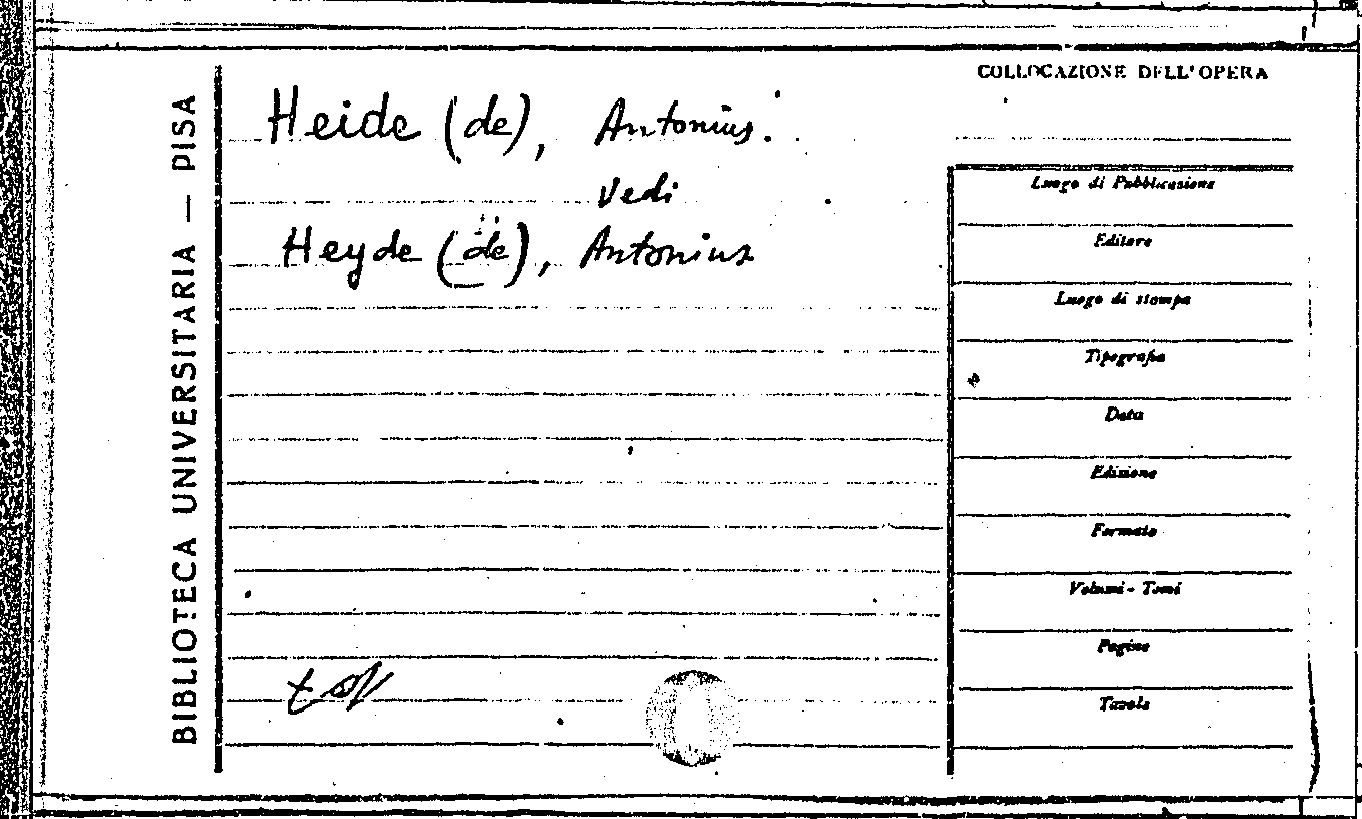 BIBLIOTECA UNIVERSITARIA — PISA
Heide (de), Antonius.
Vedi
Heyde (de), Antonius
COLLOCAZIONE DELL'OPERA
Luogo di Pubblicazione
Editore
Luogo di stampa
Tipografia
Data
Edizione
Formato
Volumi - Tomi
Pagine
Tavole